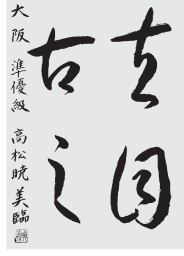 夫自
古之
大阪 準優級 高松暁美臨